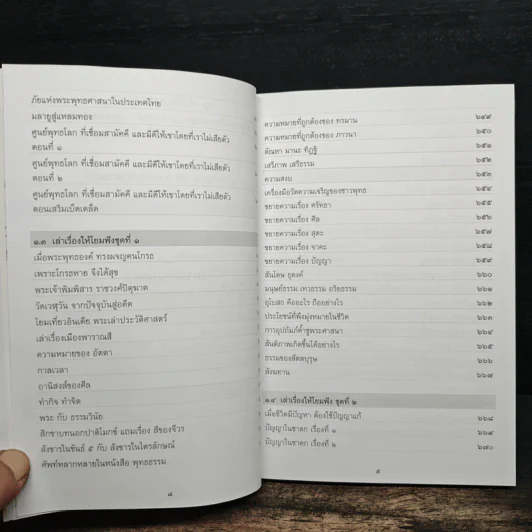 ภัยแห่งพระพุทธศาสนาในประเทศไทย
มลายูสู่แหลมทอง
ศูนย์พุทธโลก ที่เชื่อมสามัคคี และมีดีให้เขาโดยที่เราไม่เสียตัว
ตอนที่ ๑
ศูนย์พุทธโลก ที่เชื่อมสามัคคี และมีดีให้เขาโดยที่เราไม่เสียตัว
ตอนที่ ๒
ศูนย์พุทธโลก ที่เชื่อมสามัคคี และมีดีให้เขาโดยที่เราไม่เสียตัว
ตอนเสริมเบ็ดเตล็ด
๑.๓ เล่าเรื่องให้โยมฟังชุดที่ ๑
เมื่อพระพุทธองค์ ทรงผจญคนโกรธ
เพราะโกรธหาย จึงได้สุข
พระเจ้าพิมพิสาร ราชวงศ์ปิตุฆาต
วัดเวฬุวัน จากปัจจุบันสู่อดีต
โยมเที่ยวอินเดีย พระเล่าประวัติศาสตร์
เล่าเรื่องเมืองพาราณสี
ความหมายของ อัตตา
กาลเวลา
อานิสงส์ของศีล
ทำกิจ ทำจิต
พระ กับ ธรรมวินัย
สิกขาบทนอกปาติโมกข์ แถมเรื่อง สีของจีวร
สังขารในขันธ์ ๕ กับ สังขารในไตรลักษณ์
ศัพท์หลากหลายในหนังสือ พุทธธรรม
๘
ความหมายที่ถูกต้องของ ทรมาน ๖๔๙
ความหมายที่ถูกต้องของ ภาวนา ๖๕๐
ตัณหา มานะ ทิฏฐิ ๖๕๑
เสรีภาพ เสรีธรรม ๖๕๒
ความสงบ ๖๕๓
เครื่องมือวัดความเจริญของชาวพุทธ ๖๕๔
ขยายความเรื่อง ศรัทธา ๖๕๕
ขยายความเรื่อง ศีล ๖๕๖
ขยายความเรื่อง สุตะ ๖๕๗
ขยายความเรื่อง จาคะ ๖๕๘
ขยายความเรื่อง ปัญญา ๖๕๙
สันโดษ ธุดงค์ ๖๖๐
มนุษย์ธรรม เทวธรรม อริยธรรม ๖๖๑
อุโบสถ คืออะไร ถืออย่างไร ๖๖๒
ประโยชน์ที่พึงมุ่งหมายในชีวิต ๖๖๓
การอุปถัมภ์ค้ำชูพระศาสนา ๖๖๔
สันติภาพเกิดขึ้นได้อย่างไร ๖๖๕
ธรรมของสัตตบุรุษ ๖๖๖
สังฆทาน ๖๖๗
๑.๔ เล่าเรื่องให้โยมฟัง ชุดที่ ๒
เมื่อชีวิตมีปัญหา ต้องใช้ปัญญาแก้ ๖๖๘
ปัญญาในชาดก เรื่องที่ ๑ ๖๖๙
ปัญญาในชาดก เรื่องที่ ๒ ๖๗๐
๙